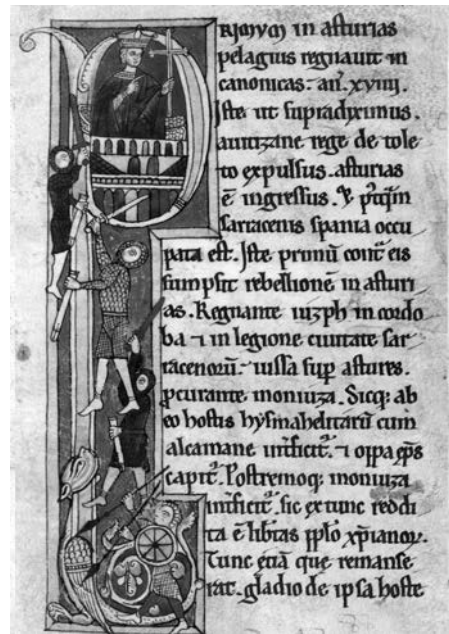 PRIMVM in asturias
pelagius regnauit in
canonicas. an̄. xviiij.
Iste ut supradiximus.
auitizane rege de tole
to expulsus. asturias
ē ingressus. & p̄tq̄m
sarracenis spania occu
pata est. Iste primū cont̄ eis
sumpsit rebellionē in asturi
as. Regnante iuzph in cordo
ba ⁊ in legione ciuitate sar
racenorū. iussa sup̱ astures.
p̱curante monuza. Sicq; ab
eo hostis hysmahelitarū cum
alcamane int̄ficit᷑. ⁊ oppa ep̄s
capit᷑. Postremoq; monuza
int̄ficit᷑. sic ex tunc reddi
ta ē lib̄tas pp̄lo xp̄ianoꝝ.
Tunc etiā que remanse
rat. gladio de ipsa hoste